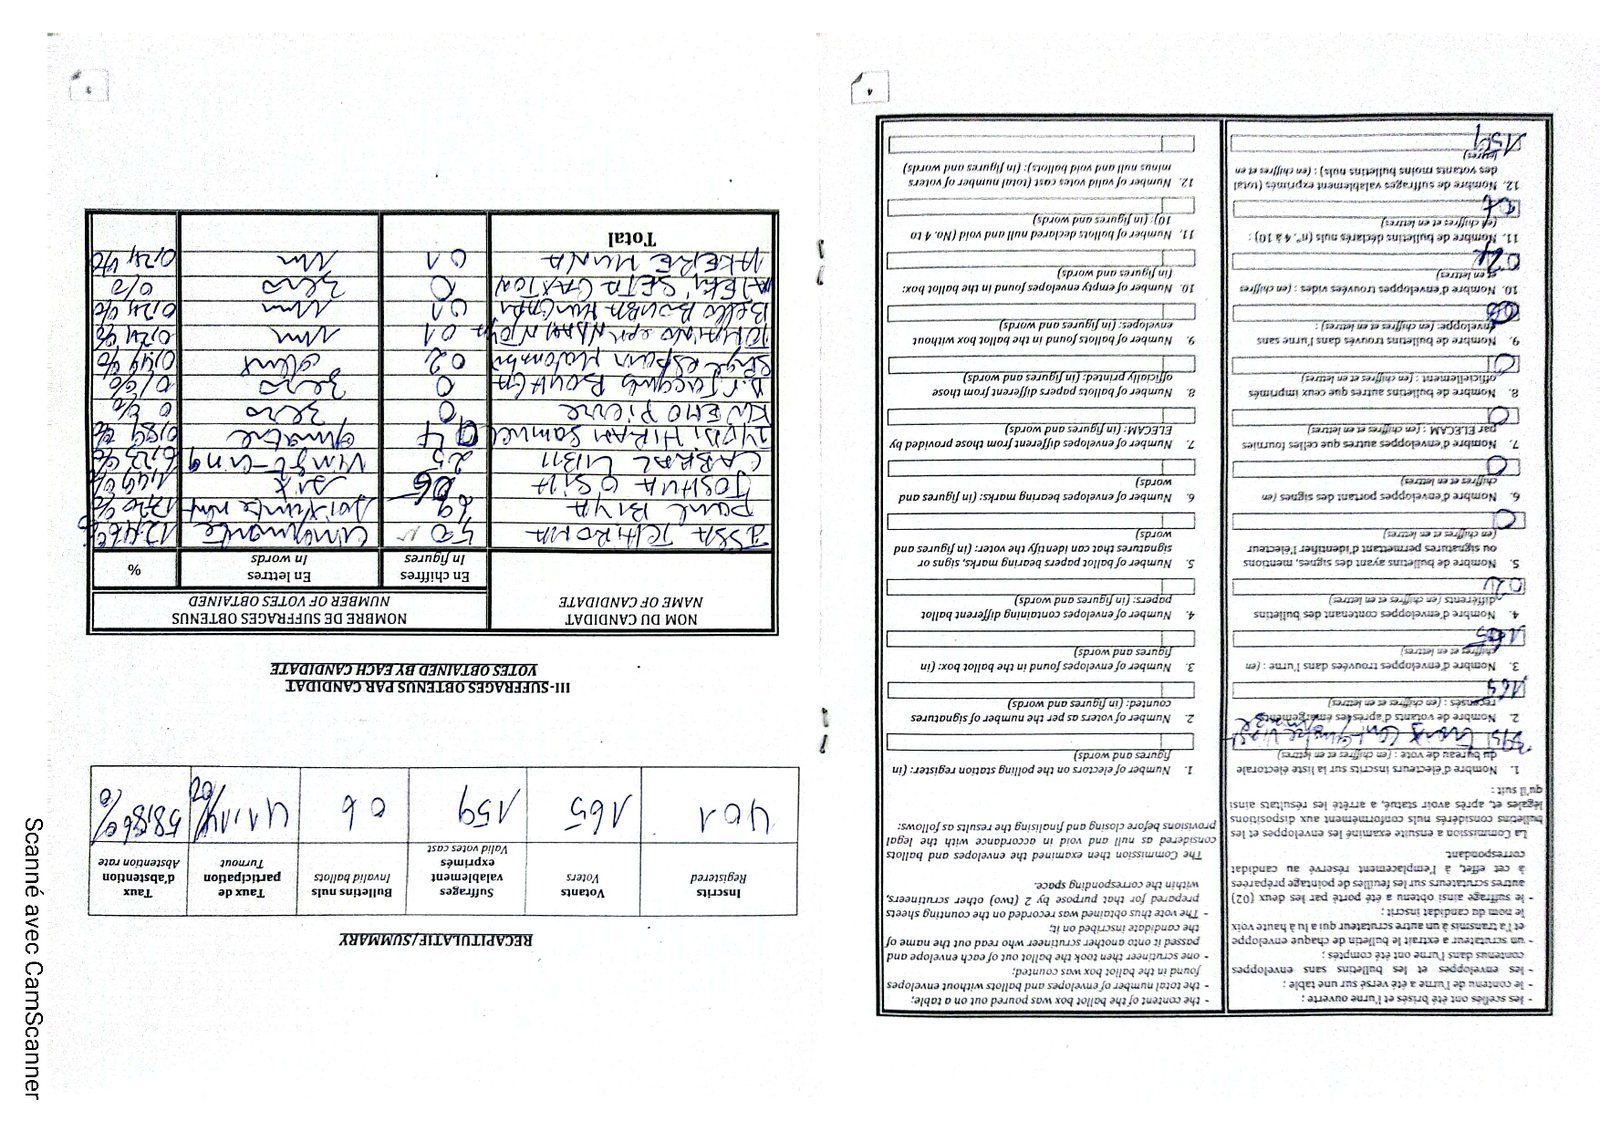 4
- les scellés ont été brisés et l'urne ouverte ;
- le contenu de l'urne a été versé sur une table ;
- les enveloppes et les bulletins sans enveloppes
contenus dans l'urne ont été comptés ;
- un scrutateur a extrait le bulletin de chaque enveloppe
et l'a transmis à un autre scrutateur qui a lu à haute voix
le nom du candidat inscrit ;
- le suffrage ainsi obtenu a été porté par les deux (02)
autres scrutateurs sur les feuilles de pointage préparées
à cet effet, à l'emplacement réservé au candidat
correspondant.
La Commission a ensuite examiné les enveloppes et les
bulletins considérés nuls conformément aux dispositions
légales et, après avoir statué, a arrêté les résultats ainsi
qu'il suit :
1. Nombre d'électeurs inscrits sur la liste électorale
du bureau de vote : (en chiffres et en lettres)
2. Nombre de votants d'après les émargements
recensés : (en chiffres et en lettres)
165
3. Nombre d'enveloppes trouvées dans l'urne : (en
chiffres et en lettres)
165
4. Nombre d'enveloppes contenant des bulletins
différents (en chiffres et en lettres)
02
5. Nombre de bulletins ayant des signes, mentions
ou signatures permettant d'identifier l'électeur
(en chiffres et en lettres)
0
6. Nombre d'enveloppes portant des signes (en
chiffres et en lettres)
0
7. Nombre d'enveloppes autres que celles fournies
par ELECAM : (en chiffres et en lettres)
0
8. Nombre de bulletins autres que ceux imprimés
officiellement : (en chiffres et en lettres)
0
9. Nombre de bulletins trouvés dans l'urne sans
enveloppe: (en chiffres et en lettres) :
10. Nombre d'enveloppes trouvées vides : (en chiffres
et en lettres)
11. Nombre de bulletins déclarés nuls (n°. 4 à 10) :
(en chiffres et en lettres)
12. Nombre de suffrages valablement exprimés (total
des votants moins bulletins nuls) : (en chiffres et en
lettres)
159
- the content of the ballot box was poured out on a table;
- the total number of envelopes and ballots without envelopes
found in the ballot box was counted;
- one scrutineer then took the ballot out of each envelope and
passed it onto another scrutineer who read out the name of
the candidate inscribed on it;
- The vote thus obtained was recorded on the counting sheets
prepared for that purpose by 2 (two) other scrutineers,
within the corresponding space.
The Commission then examined the envelopes and ballots
considered as null and void in accordance with the legal
provisions before closing and finalising the results as follows:
1. Number of electors on the polling station register: (in
figures and words)
2. Number of voters as per the number of signatures
counted: (in figures and words)
3. Number of envelopes found in the ballot box: (in
figures and words)
4. Number of envelopes containing different ballot
papers: (in figures and words)
5. Number of ballot papers bearing marks, signs or
signatures that can identify the voter: (in figures and
words
6. Number of envelopes bearing marks: (in figures and
words)
7. Number of envelopes different from those provided by
ELECAM: (in figures and words)
8. Number of ballots papers different from those
officially printed: (in figures and words)
9. Number of ballots found in the ballot box without
envelopes: (in figures and words)
10. Number of empty envelopes found in the ballot box:
(in figures and words)
11. Number of ballots declared null and void (No. 4 to
10): (in figures and words)
12. Number of valid votes cast (total number of voters
minus null and void ballots): (in figures and words)
RECAPITULATIF/SUMMARY
Inscrits Registered
Votants Voters
Suffrages valablement exprimés Valid votes cast
Bulletins nuls Invalid ballots
Taux de participation Turnout
Taux d'abstention Abstention rate
401 165 159 06 41,14% 58,86%
III-SUFFRAGES OBTENUS PAR CANDIDAT
VOTES OBTAINED BY EACH CANDIDATE
NOM DU CANDIDAT
NAME OF CANDIDATE
NOMBRE DE SUFFRAGES OBTENUS
NUMBER OF VOTES OBTAINED
En chiffres In figures
En lettres In words
%
ISSA TCHIROMA 50 cinquante 12,46%
PAUL BIYA 69 soixante neuf
JOSHUA OSIH 06 six 1,49%
CABRAL LIBII 25 vingt-cinq 6,23%
HIRAM Samuel 04 quatre
KWEMO Pierre 0 zero 0%
Dr Jacques BOUHGA 0 zero 0%
Serge ESPOIR Matomba 02 deux
TOMAINO 01 un 0,24%
Bello BOUBA 01 un 0,24%
SETA GASTON 0 zero 0%
AKERE MUNA 01 un 0,24%
Total
3
Scanné avec CamScanner